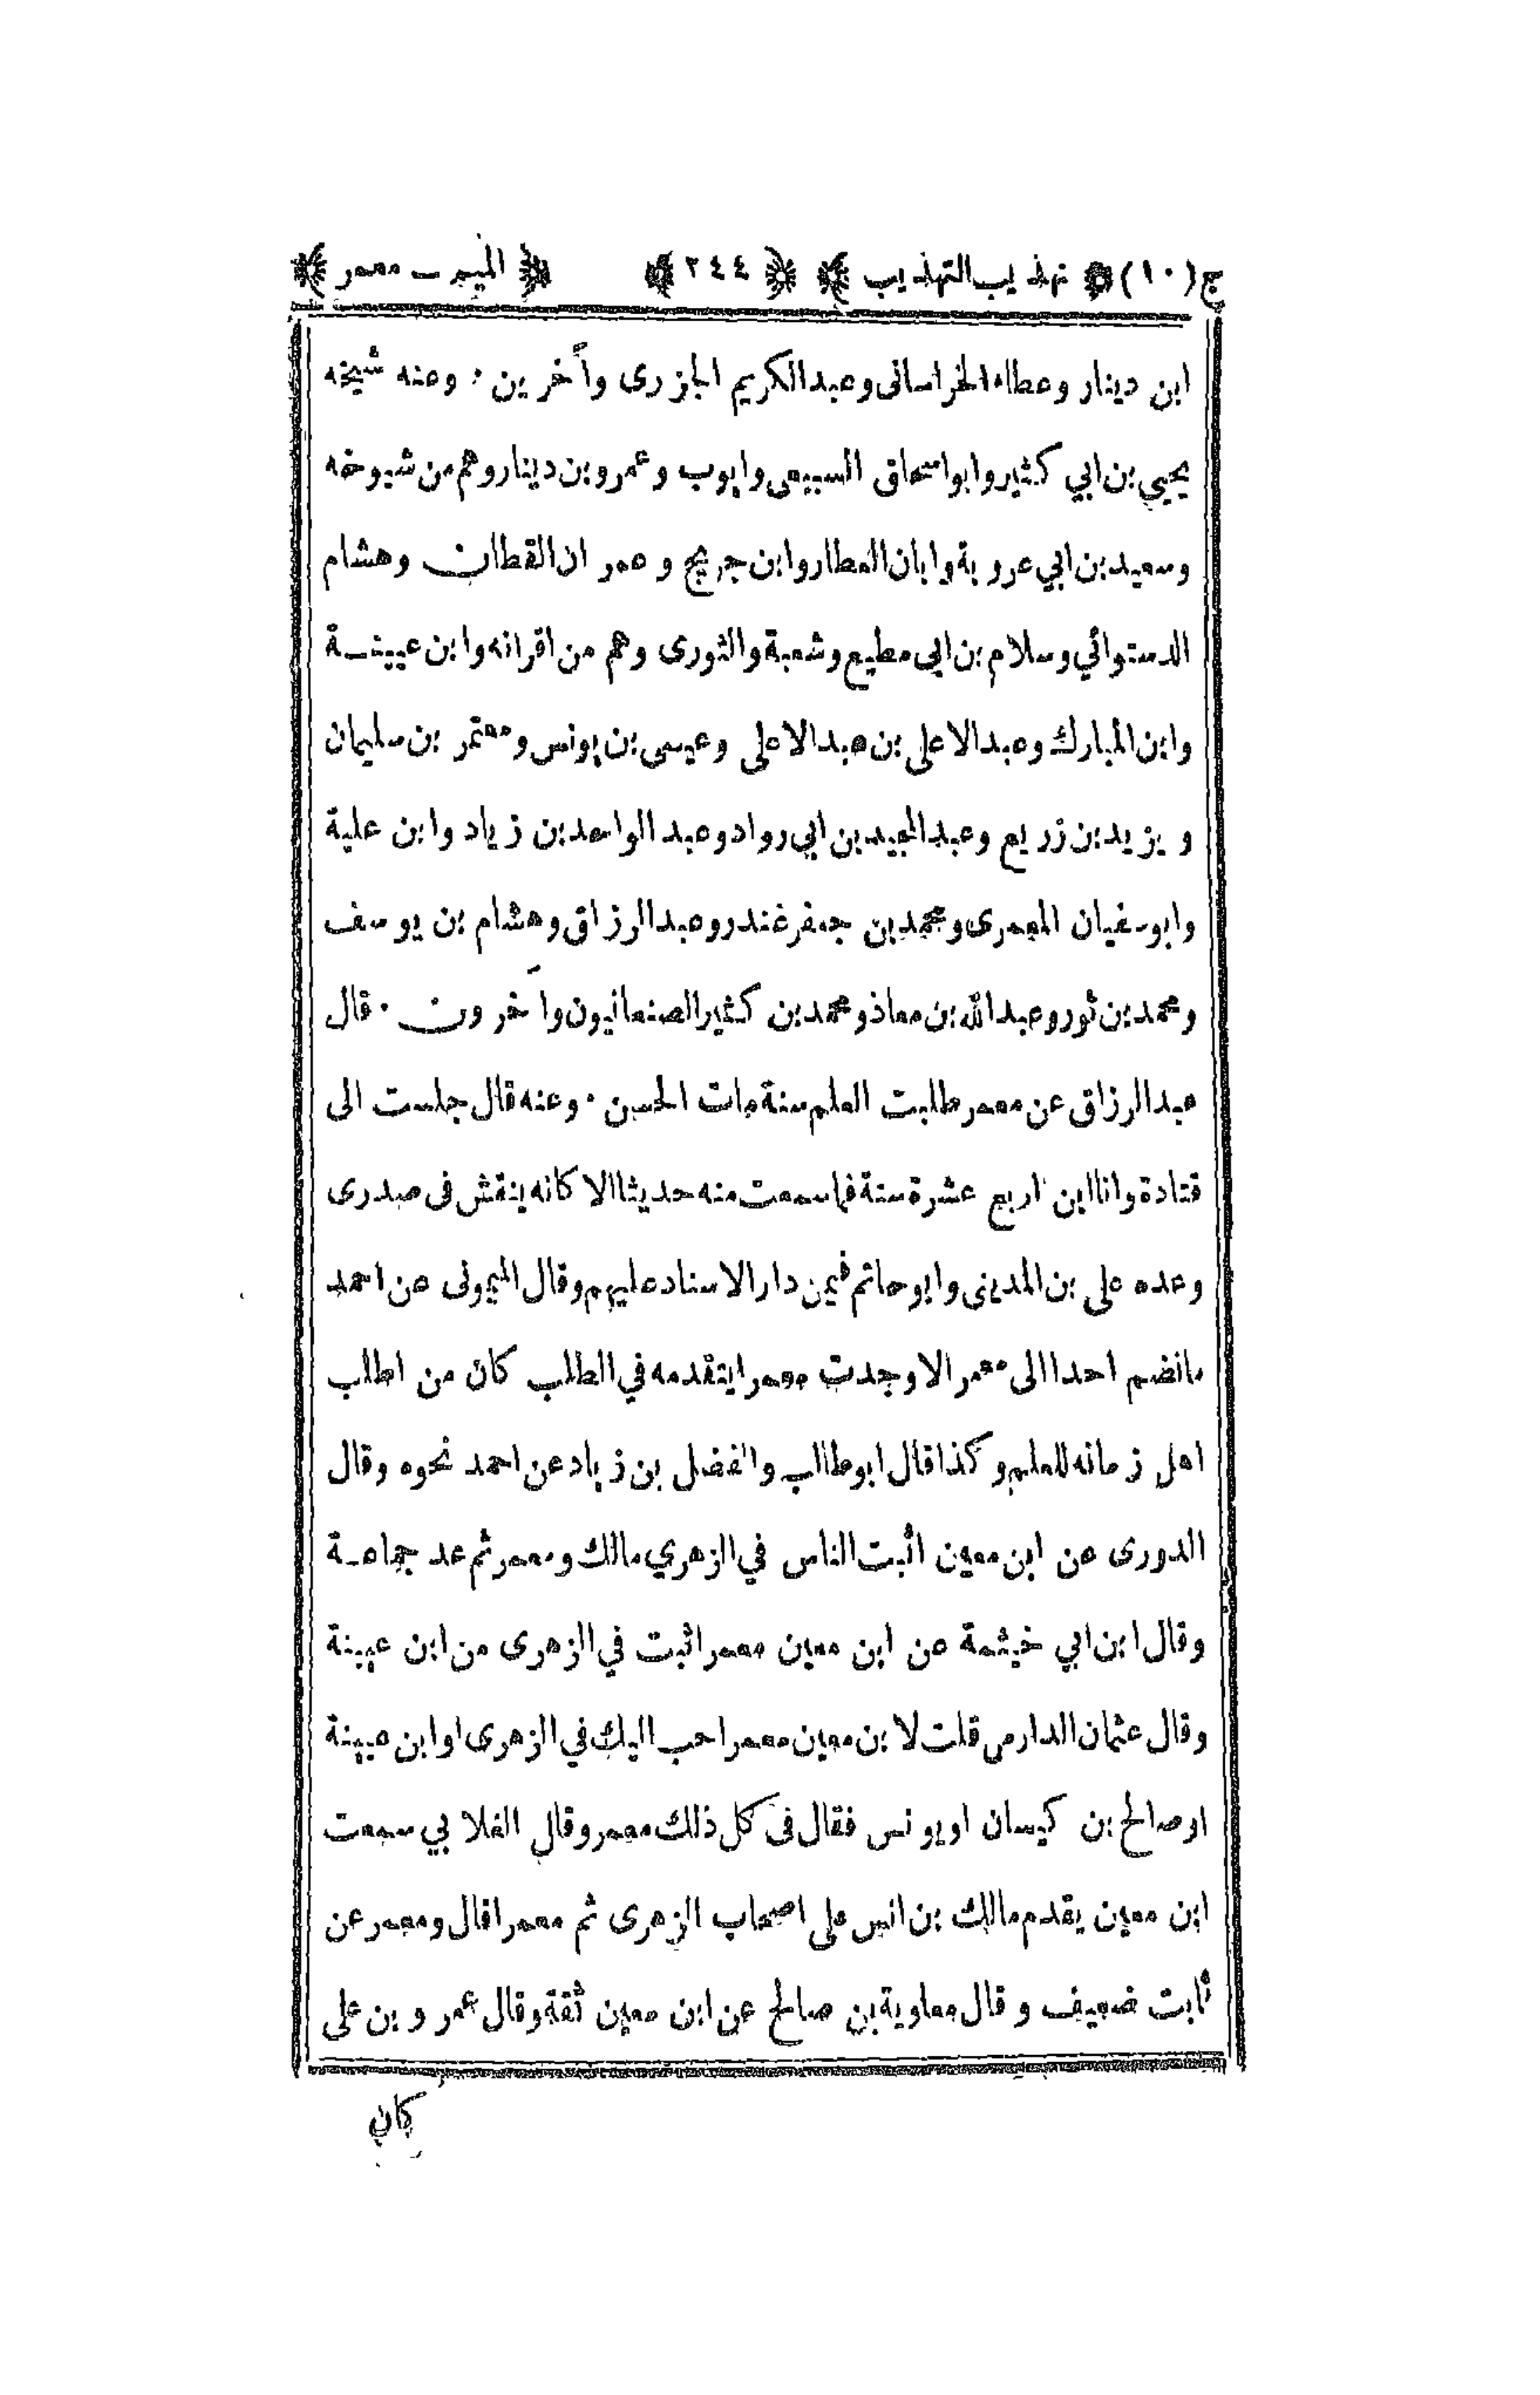 ج(١٠) تهذيب التهذيب ﴿ ٢٤٤ ﴾ ﴿ الميم ـ معمر ﴾
ابن دينار وعطاء الخراساني وعبدالكريم الجزرى وآخرين · وعنه شيخه
يحيي بن ابي كثير وابو اسحاق السبيعى وايوب وعمرو بن دينار وهم من شيوخه
وسعيد بن ابي عروبة وابان العطار وابن جريج وعمران القطان وهشام
الدستوائي وسلام بن ابي مطيع وشعبة والثورى وهم من اقرانه وابن عيينــة
وابن المبارك وعبد الاعلى بن عبد الاعلى وعيسى بن يونس ومعتمر بن سليمان
ويزيد بن زريع وعبد المجيد بن ابي رواد وعبد الواحد بن زياد وابن علية
وابو سفيان المعمرى ومحمد بن جعفر غندر وعبد الرزاق وهشام بن يوسف
ومحمد بن ثور وعبد الله بن معاذ ومحمد بن كثير الصنعانيون وآخرون · قال
عبد الرزاق عن معمر طلبت العلم سنة مات الحسن · وعنه قال جلست الى
قتادة وانا ابن اربع عشرة سنة فما سمعت منه حديثا الا كانه ينقش فى صدرى
وعده على بن المدينى وابو حاتم فيمن دار الاسناد عليهم وقال الميمونى عن احمد
مانضم احدا الى معمر الا وجدت معمرا يتقدمه في الطلب كان من اطلب
اهل زمانه للعلم وكذا قال ابو طالب والفضل بن زياد عن احمد نحوه وقال
الدورى عن ابن معين اثبت الناس في الزهري مالك ومعمر ثم عد جماعــة
وقال ابن ابي خيثمة عن ابن معين معمر اثبت في الزهرى من ابن عيينة
وقال عثمان الدارمى قلت لابن معين معمر احب اليك في الزهرى او ابن عيينة
او صالح بن كيسان او يونس فقال فى كل ذلك معمر وقال الغلابي سمعت
ابن معين يقدم مالك بن انس على اصحاب الزهرى ثم معمرا قال ومعمر عن
ثابت ضعيف وقال معاوية بن صالح عن ابن معين ثقة وقال عمرو بن على
كان